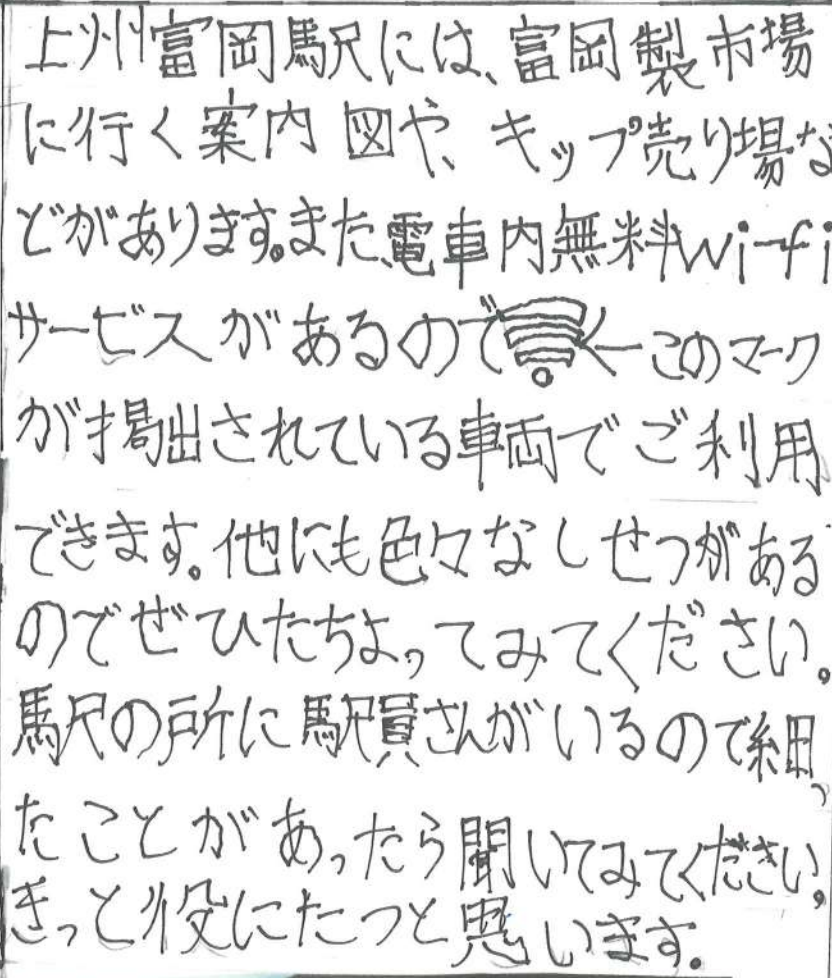 上州富岡駅には、富岡製市場
に行く案内図や、キップ売り場な
どがあります。また、電車内無料Wi-fi
サービスがあるので←このマーク
が掲出されている車両でご利用
できます。他にも色々なしせつがある
のでぜひたちよってみてください。
駅の所に駅員さんがいるので細っ
たことがあったら聞いてみてください。
きっと役にたつと思います。